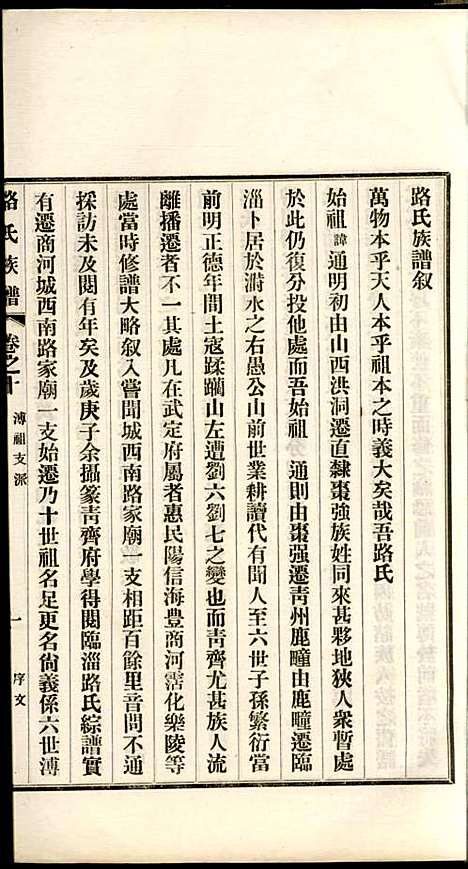 路氏族譜叙
萬物本乎天人本乎祖本之時義大矣哉吾路氏
始祖諱通明初由山西洪洞遷直隸棗強族姓同來甚夥地狹人衆暫處
於此仍復分投他處而吾始祖通則由棗强遷青州鹿疃由鹿疃遷臨
淄卜居於溡水之右愚公山前世業耕讀代有聞人至六世子孫繁衍當
前明正德年間土寇蹂躪山左遭劉六劉七之變也而青齊尤甚族人流
離播遷者不一其處凡在武定府屬者惠民陽信海豊商河霑化樂陵等
處當時修譜大略叙入嘗聞城西南路家廟一支相距百餘里音問不通
採訪未及閱有年矣及歲庚子余攝篆青齊府學得閱臨淄路氏綜譜實
有遷商河城西南路家廟一支始遷乃十世祖名足更名尙義係六世溥
路氏族譜
卷之十
溥祖支派
一
序文